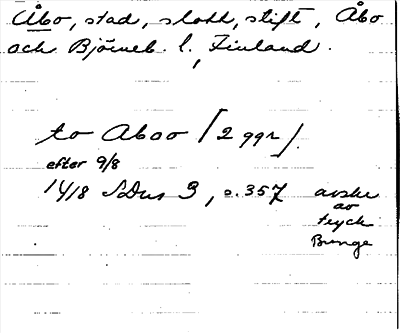 Åbo, stad, slott, stift, Åbo
och Björneb. l., Finland.
to Aboo [2 ggr].
efter 9/8
14/8 SDns 3, s. 357 avskr
av
tryck
Bunge